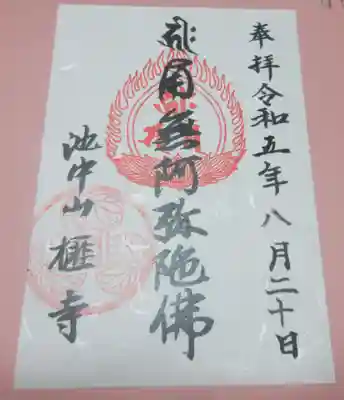 奉拝 令和五年 八月二十日
南無阿弥陀佛
池中山 榧寺